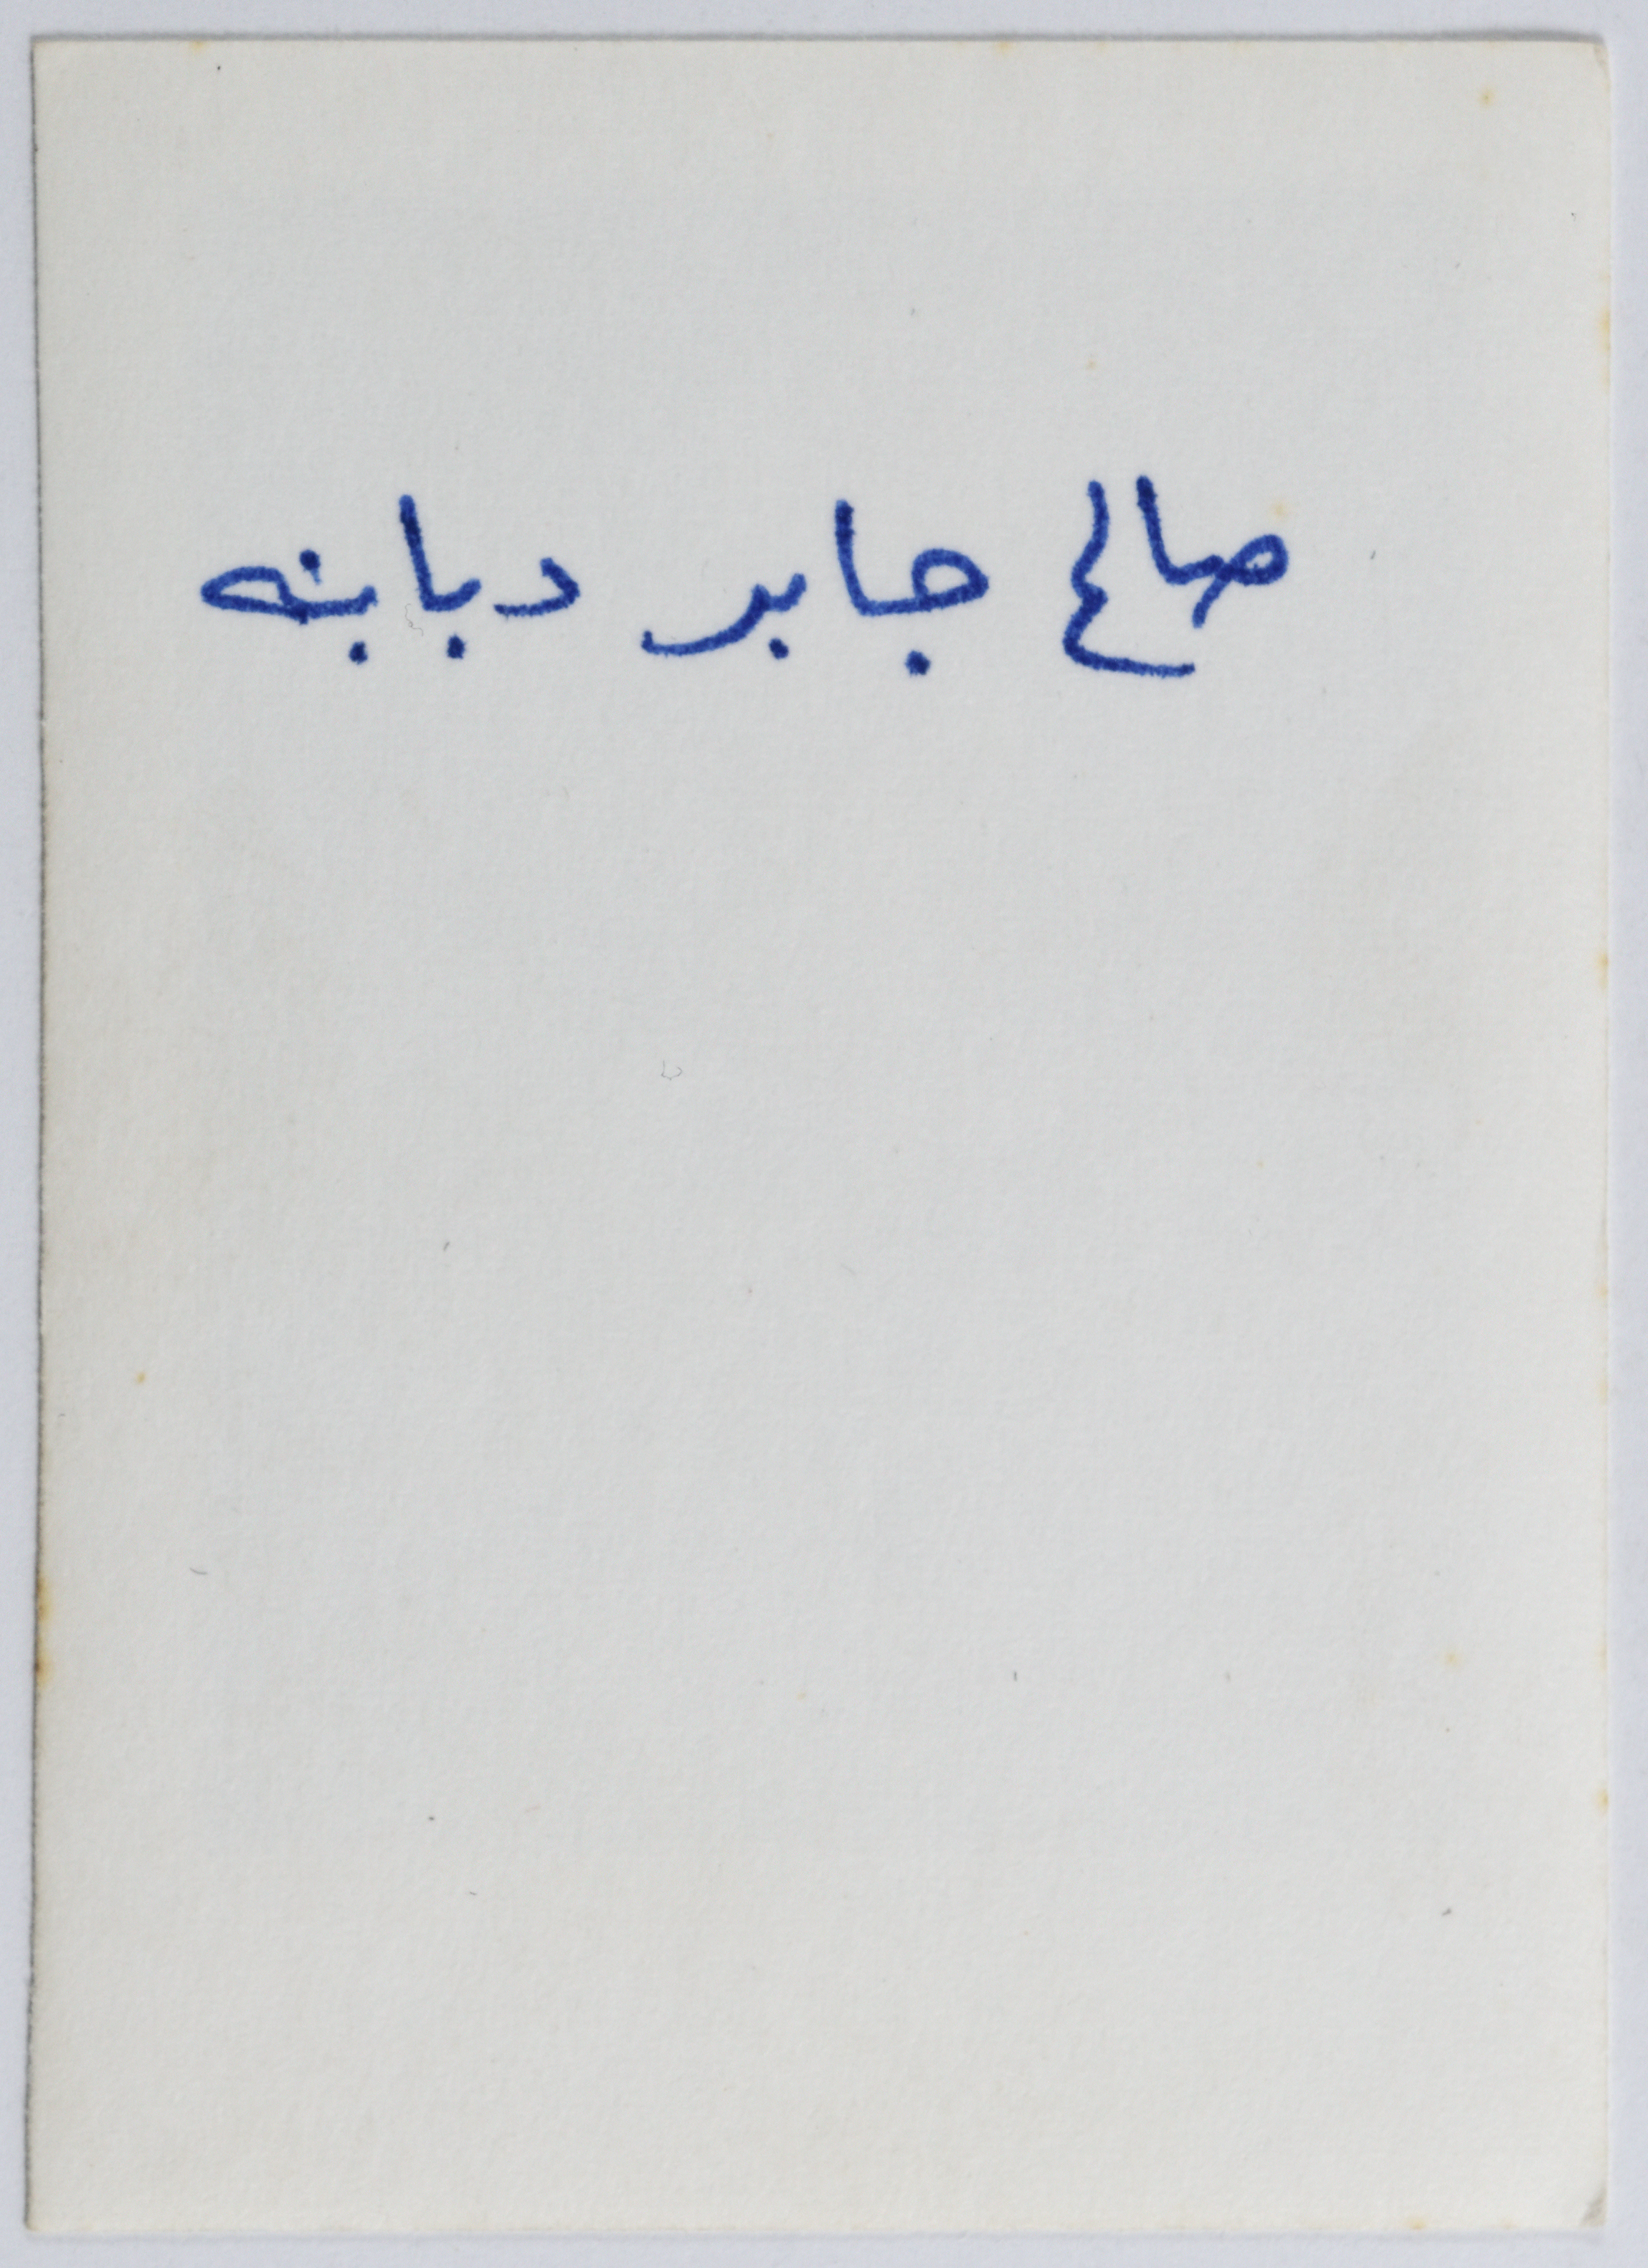 صالح جابر دبابنه